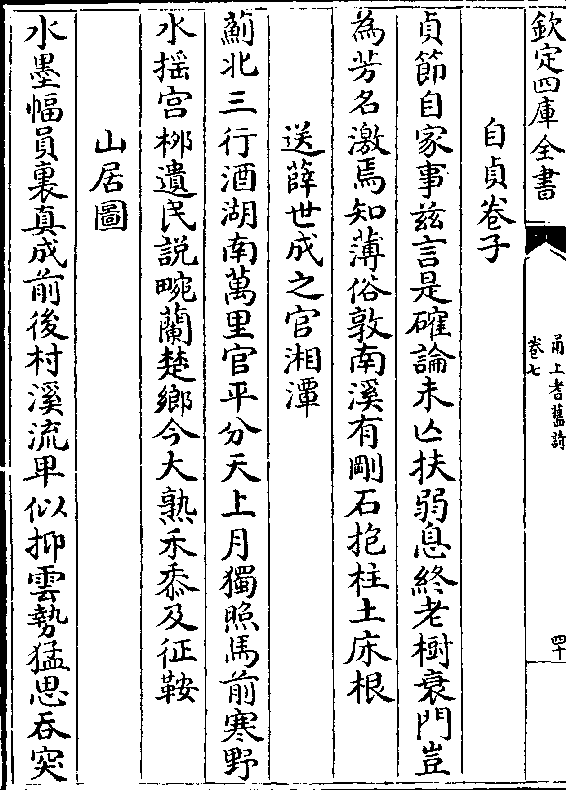 欽定四庫全書
甬上耆舊詩
卷七
四十
自貞卷子
貞節自家事兹言是確論未亡扶弱息終老樹衰門豈
為芳名激焉知薄俗敦南溪有剛石抱柱土床根
送薛世成之官湘潭
薊北三行酒湖南萬里官平分天上月獨照馬前寒野
水揺宫栁遺民説畹蘭楚鄉今大熟禾黍及征鞍
山居圖
水墨幅員裏真成前後村溪流卑似抑雲勢猛思吞突